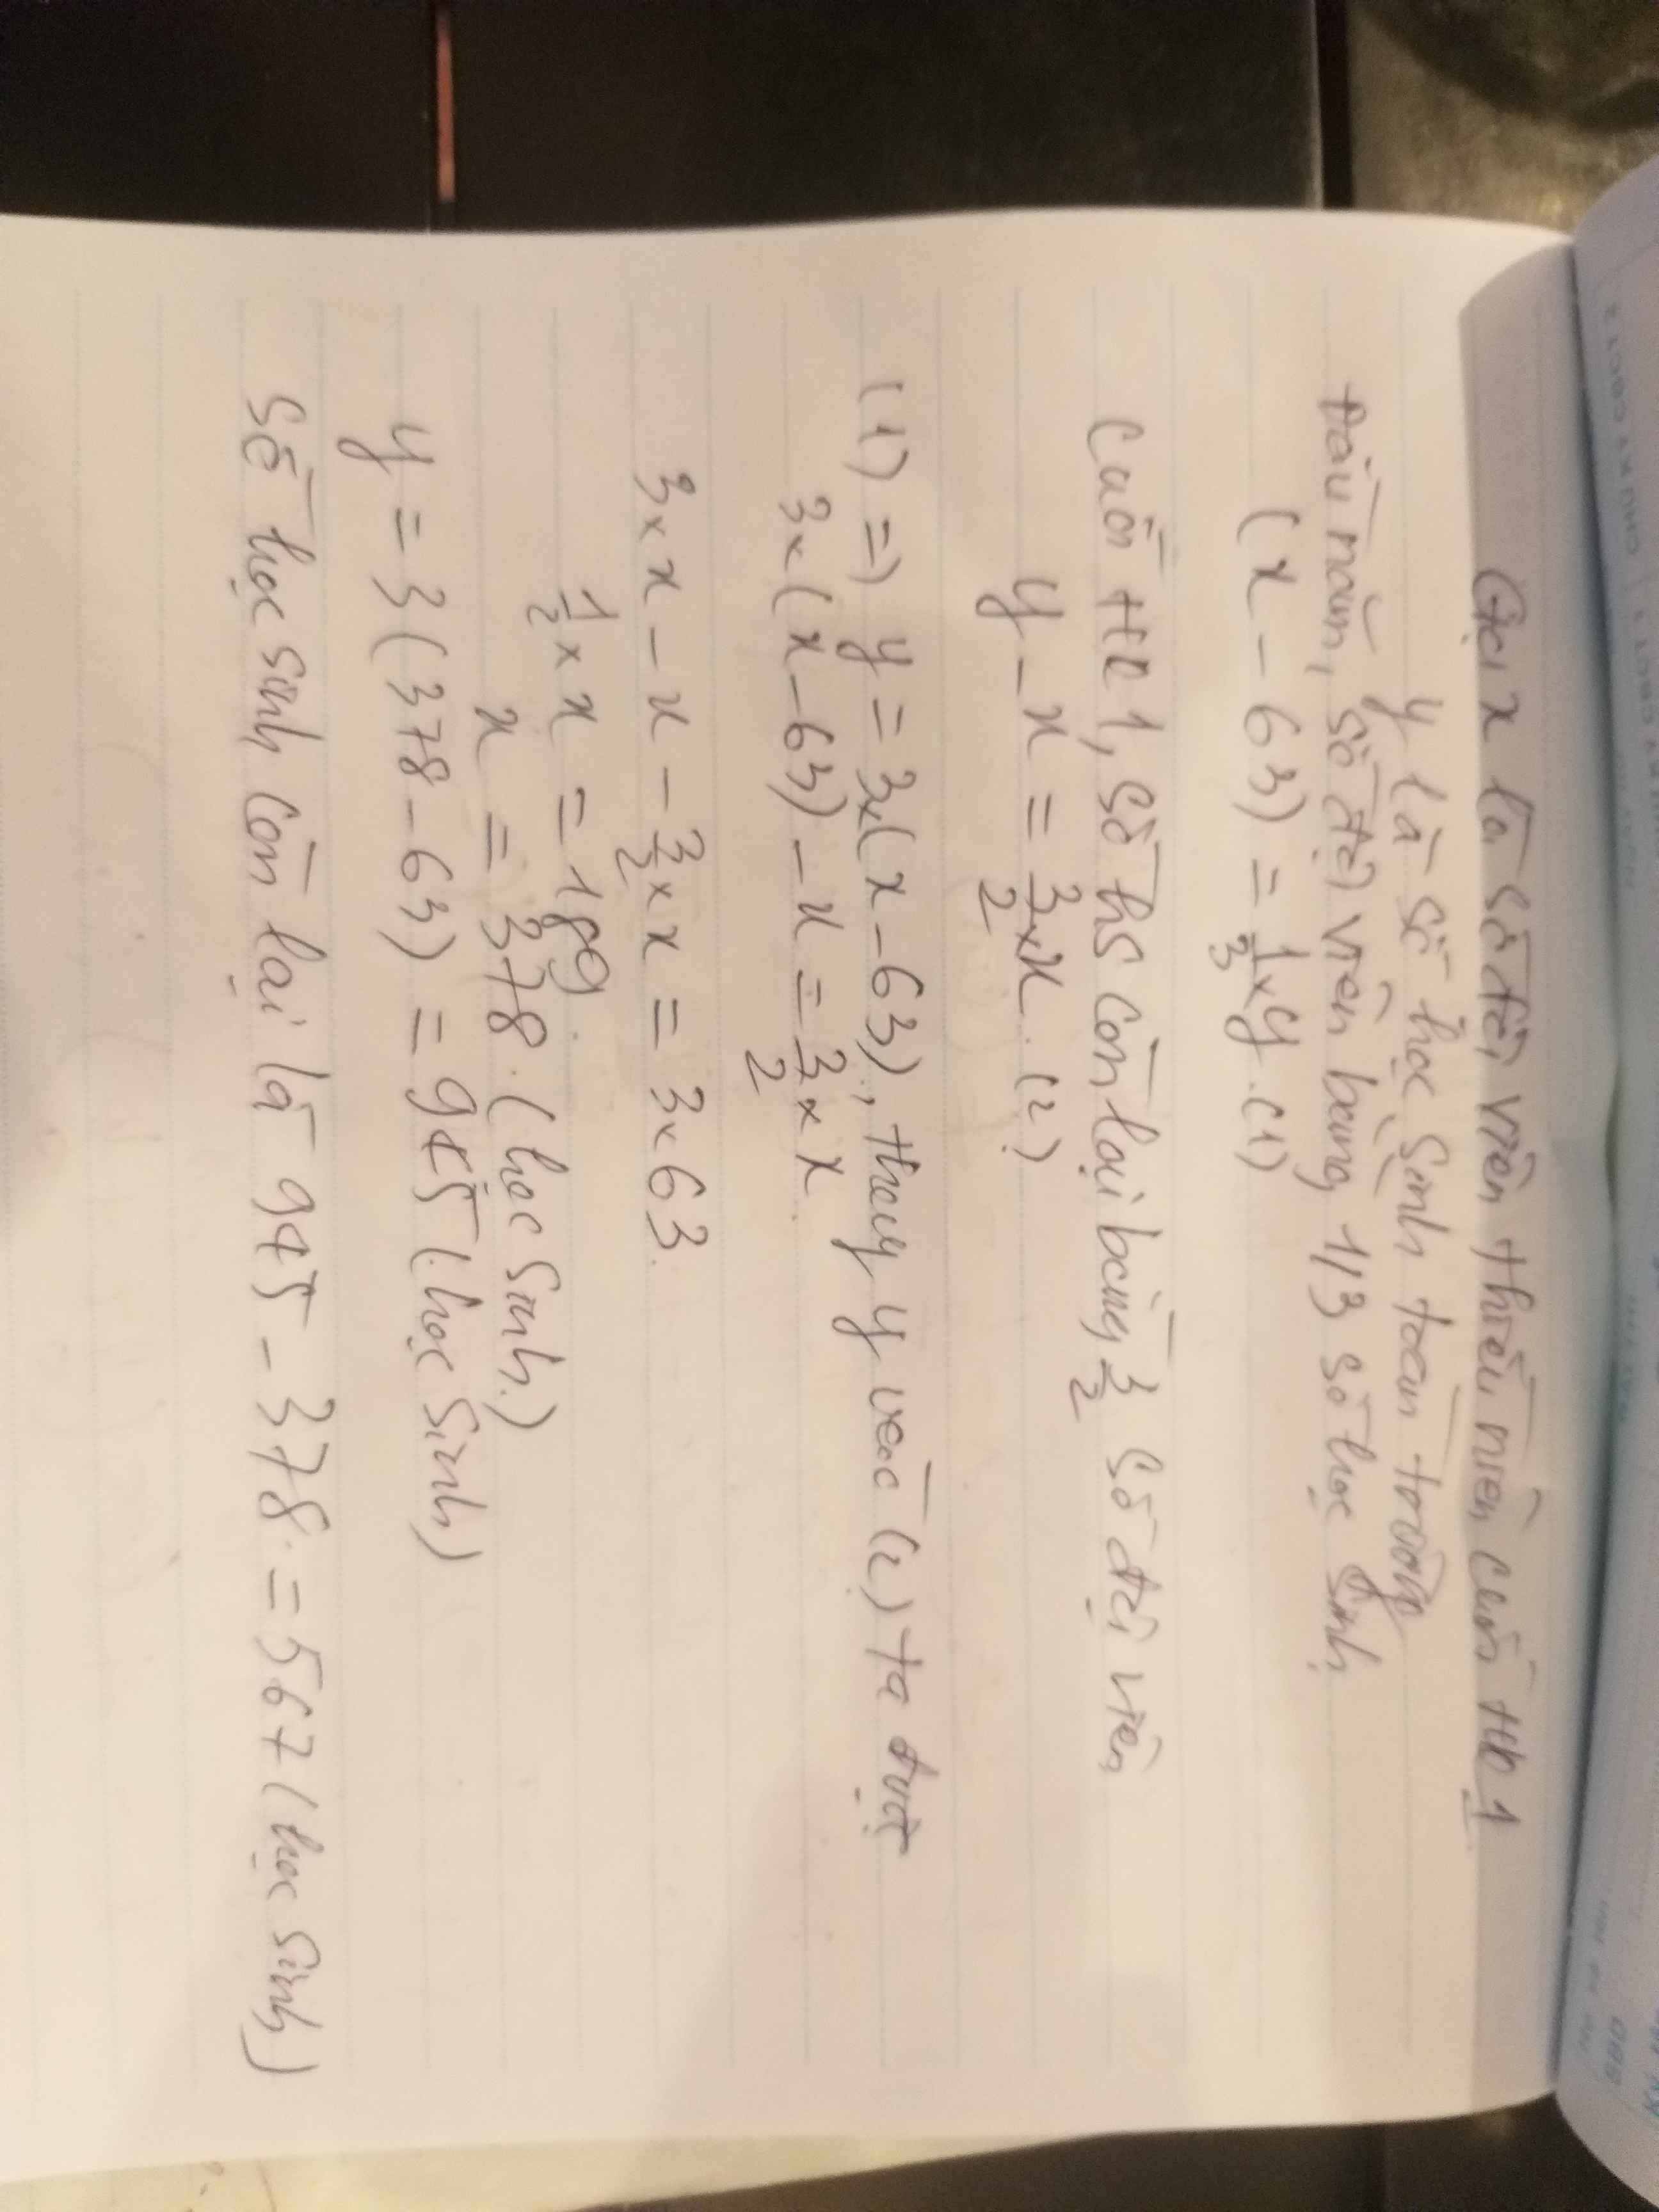 Gọi x là số đội viên thiếu niên cuối HK 1
y là số học sinh toàn trường
Đầu năm, số đội viên bằng 1/3 số học sinh
(x - 63) = 1/3 x y. (1)
Cuối HK 1, số hs còn lại bằng 3/2 số đội viên
y - x = 3/2 x x. (2)
(1) => y = 3x(x - 63), thay y vào (2) ta được
3x(x - 63) - x = 3/2 x x
3x x - x - 3/2 x x = 3x 63
1/2 x x = 189.
x = 378. (học sinh.)
y = 3(378 - 63) = 945 (học sinh)
Số học sinh còn lại là 945 - 378 = 567 (học sinh)